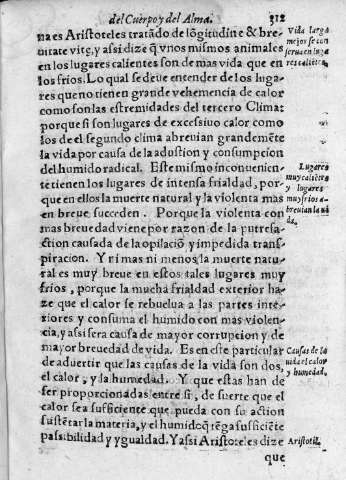 del Cuerpo y del Alma. 312
na es Aristoteles tratãdo de lõgitudine & bre-
uitate vitę, y assi dize q̃ vnos mismos animales
en los lugares calientes son de mas vida que en
los frios. Lo qual se deue entender de los luga-
res que no tienen grande vehemencia de calor
como son las estremidades del tercero Clima:
porque si son lugares de excessiuo calor como
los de el segundo clima abreuian grandemẽte
la vida por causa de la adustion y consumpcion
del humido radical. Este mismo inconuenien-
te tienen los lugares de intensa frialdad, por-
que en ellos la muerte natural y la violenta mas
en breue succeden. Porque la violenta con
mas breuedad viene por razon de la putrefa-
ction causada de la opilaciõ y impedida trans-
piracion. Y ni mas ni menos la muerte natu-
ral es muy breue en estos tales lugares muy
frios, porque la mucha frialdad exterior ha-
ze que el calor se rebuelua a las partes inte-
riores y consuma el humido con mas violen-
cia, y assi sera causa de mayor corrupcion y de
mayor breuedad de vida. Es en este particular
de aduertir que las causas de la vida son dos,
el calor, y la humedad. Y que estas han de
ser proporcionadas entre si, de suerte que el
calor sea sufficiente que pueda con su action
sustẽtar la materia, y el humido q̃ tẽga sufficiẽte
passibilidad y ygualdad. Y assi Aristoteles dize
que
Vida larga
mejor se con
serua en luga
res caliẽtes.
Lugares
muy caliẽtes
y lugares
muy frios a-
breuian la vi
da.
Causas de la
vida el calor
y humedad.
Aristotil.